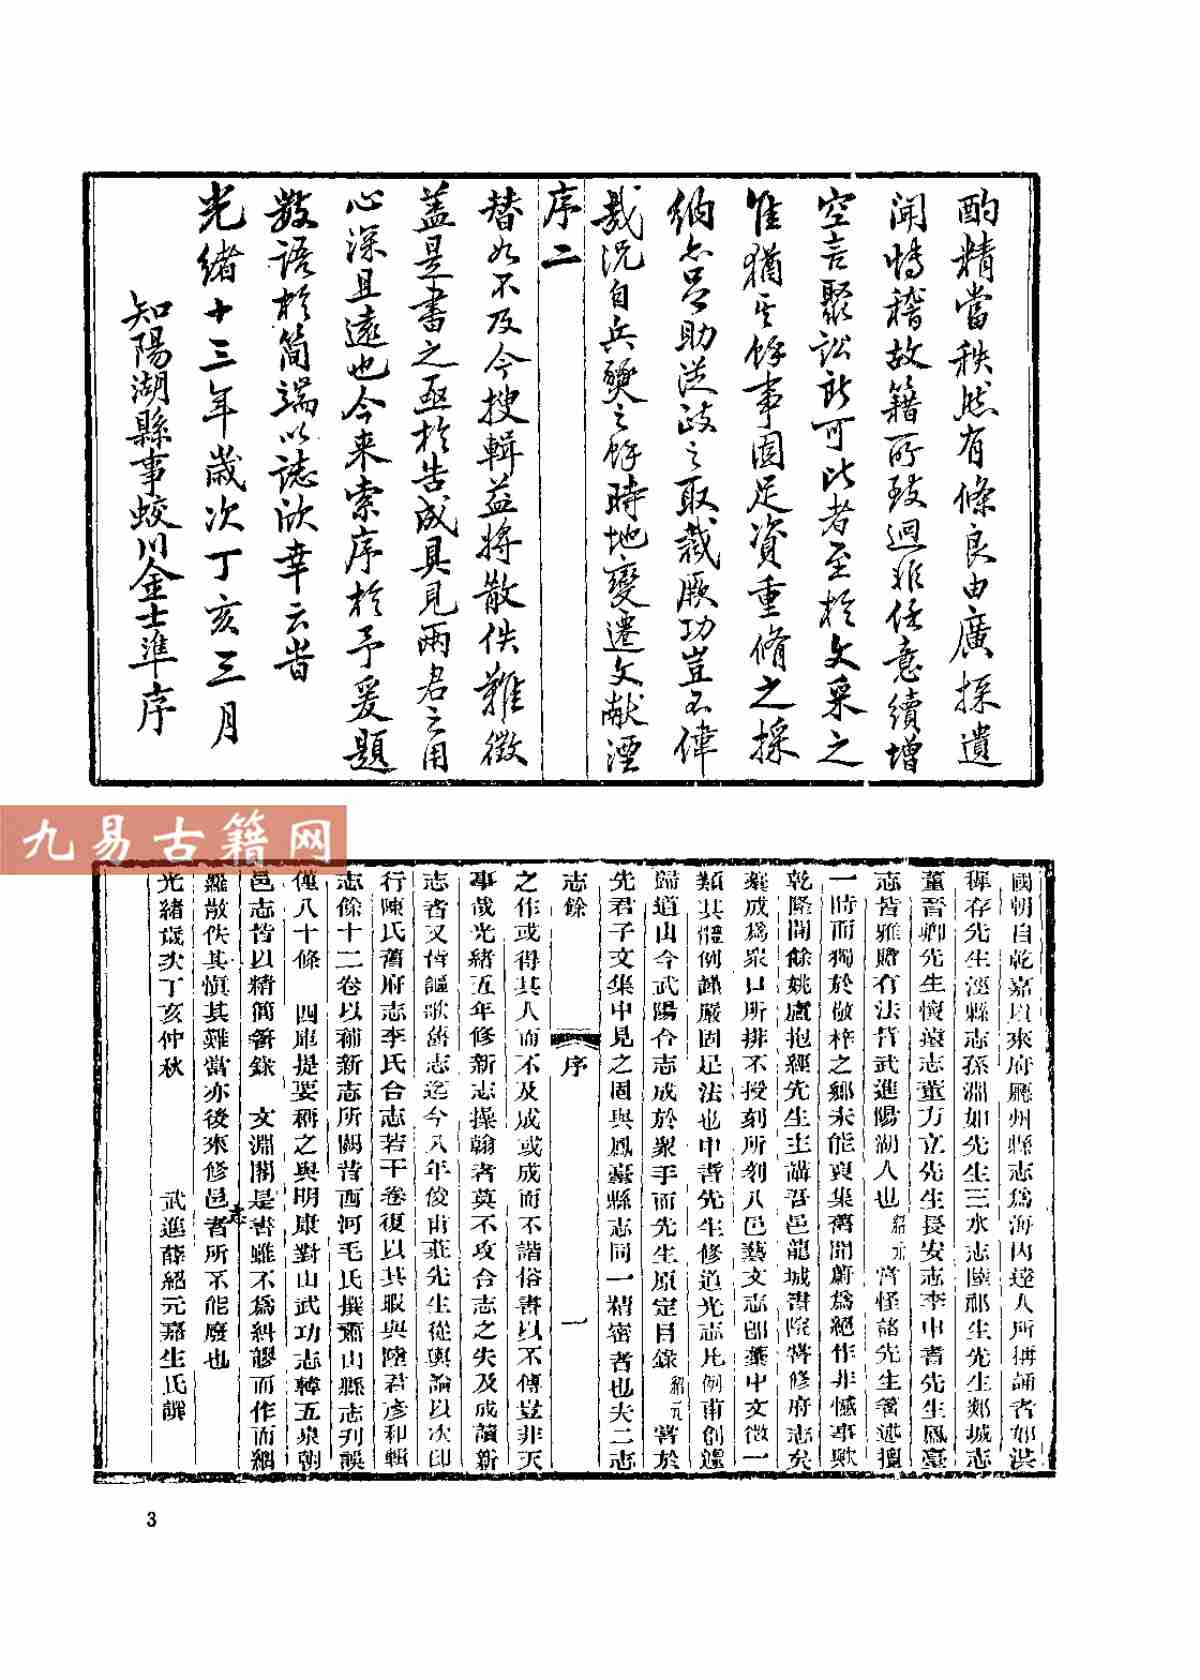 酌精當秩然有條良由廣採遺
聞博稽故籍所致迥非任意續增
空言聚訟所可比者至於文采之
雅猶其餘事固足資重脩之採
納亦呂助從政之取裁厥功豈不偉
哉況自兵燹之餘時地變遷文献湮
序二
替如不及今搜輯益將散佚難徵
蓋是書之亟於告成具見兩君之用
心深且遠也今来索序於予爰題
數語於简端以誌欣幸云者
光緒十三年歲次丁亥三月
知陽湖縣事蛟川金士準序
九易古籍网
國朝自乾嘉以來府廳州縣志爲海內達人所稱誦者如洪
稺存先生涇縣志孫淵如先生三水志陸祁生先生郯城志
董晉卿先生懷遠志董方立先生長安志李申耆先生鳳臺
志皆雅贍有法皆武進陽湖人也紹元嘗怪諸先生著述擅
一時而獨於敬梓之鄉未能裒集舊聞蔚爲絕作非憾事歟
乾隆間餘姚盧抱經先生主講吾邑龍城書院嘗修府志矣
藁成爲衆口所排不授刻所刻八邑藝文志卽藁中文徵一
類其體例謹嚴固足法也申耆先生修道光志凡例甫創遽
歸道山今武陽合志成於衆手而先生原定目錄紹元嘗於
先君子文集中見之固與鳳臺縣志同一精密者也夫二志
志餘
序
一
之作或得其人而不及成或成而不諧俗書以不傳豈非天
事哉光緒五年修新志操翰者莫不攻合志之失及成讀新
志者又皆謳歌舊志迄今八年俊甫莊先生從輿論以次印
行陳氏舊府志李氏合志若干卷復以其暇與陸君彥和輯
志餘十二卷以補新志所闕昔西河毛氏撰蕭山縣志刋誤
僅八十條 四庫提要稱之與明康對山武功志韓五泉朝
邑志皆以精簡著錄 文淵閣是書雖不爲糾謬而作而網
羅散佚其愼其難當亦後來修邑志者所不能廢也
光緒歲次丁亥仲秋 武進薛紹元嘉生氏譔
3